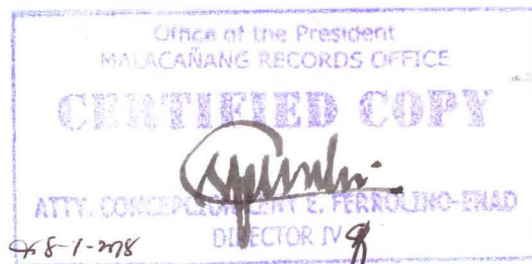 Office of the President
MALACAÑANG RECORDS OFFICE
CERTIFIED COPY
ATTY. CONCEPCION E. FERROLINO-ENAD
DIRECTOR IV
8-1-2018